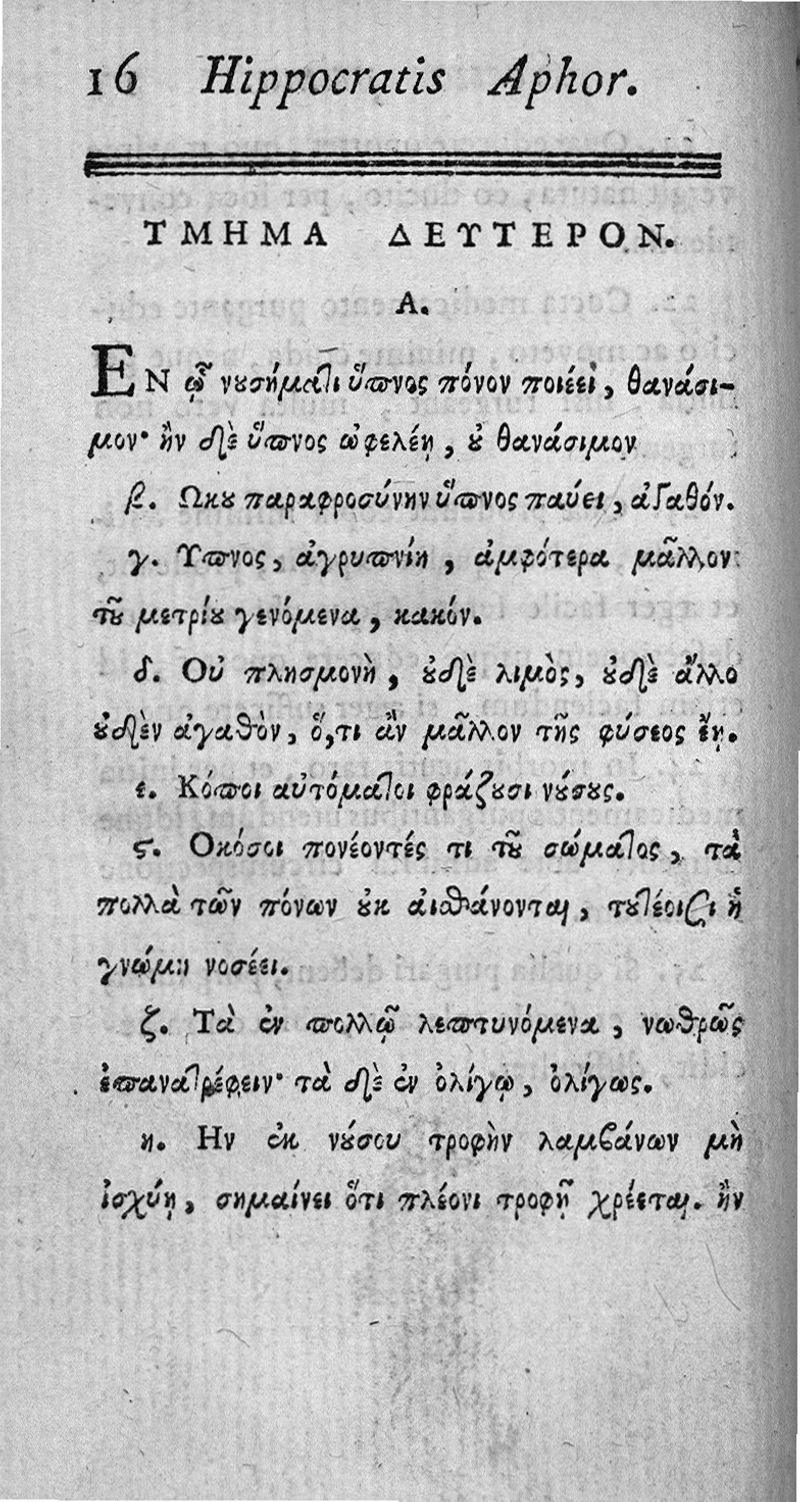 16 Hippocratis Aphor.
ΤΜΗΜΑ ΔΕΥΤΕΡΟΝ.
Α.
ΕΝ ᾧ νȣσήματι ὕπνος πόνον ποιέει, θανάσι-
μον· ἢν δὲ ὕπνος ὠφελέῃ, ȣ θανάσιμον
β. Ωκȣ παραφροσύνην ὕπνος παύει, ἀγαθόν.
γ. Υπνος, ἀγρυπνίη, ἀμφότερα μᾶλλον
τȣ͂ μετρίȣ γενόμενα, κακόν.
δ. Οὐ πλησμονὴ, ȣδὲ λιμὸς, ȣδὲ ἄλλο
ȣδὲν ἀγαθὸν, ὅ,τι ἂν μᾶλλον τῆς φύσεος ἔῃ.
ε. Κόποι αὐτόματοι φράζȣσι νȣ́σȣς.
ϛ. Οκόσοι πονέοντές τι τȣ͂ σώματος, τὰ
πολλὰ τῶν πόνων ȣκ αἰσθάνονται, τȣτέοισι ἡ
γνώμη νοσέει.
ζ. Τὰ ἐν πολλῷ λεπτυνόμενα, νωθρῶς
ἐπανατρέφειν· τὰ δὲ ἐν ὀλίγῳ, ὀλίγως.
η. Ην ἐκ νȣ́σου τροφὴν λαμβάνων μὴ
ἰσχύῃ, σημαίνει ὅτι πλέονι τροφῇ χρέεται. ἢν